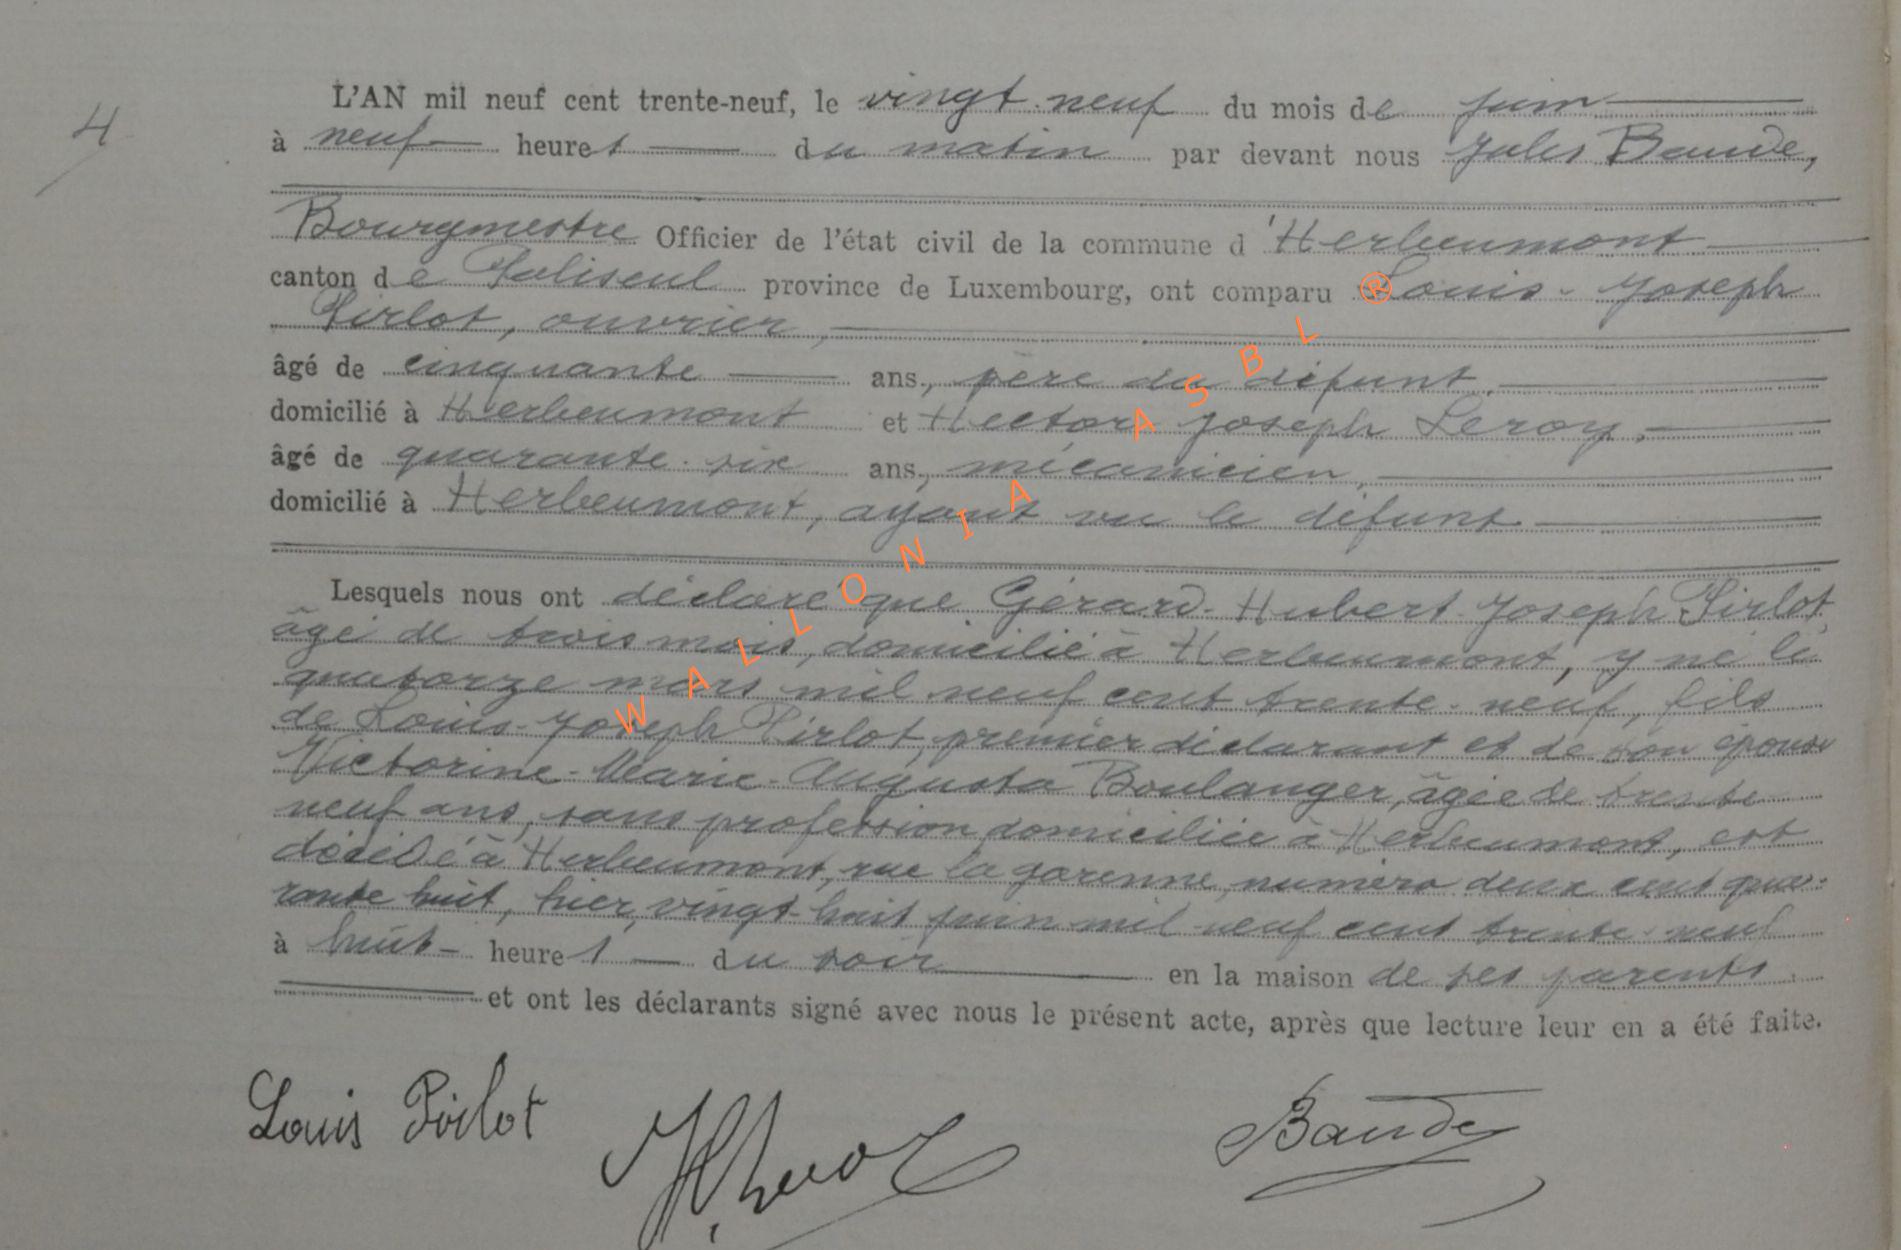 4
L'AN mil neuf cent trente-neuf, le vingt-neuf du mois de juin
à neuf heures du matin par devant nous Jules Baude,
Bourgmestre Officier de l'état civil de la commune d'Herbeumont
canton de Paliseul province de Luxembourg, ont comparu Louis-Joseph
Pirlot, ouvrier,
âgé de cinquante ans, père du défunt,
domicilié à Herbeumont et Hector Joseph Leroy,
âgé de quarante-six ans, mécanicien,
domicilié à Herbeumont, ayant vu le défunt
Lesquels nous ont déclaré que Gérard-Hubert-Joseph Pirlot,
âgé de trois mois, domicilié à Herbeumont, y né le
quatorze mars mil neuf cent trente-neuf, fils
de Louis-Joseph Pirlot, premier déclarant et de son épouse
Victorine-Marie-Augusta Boulanger, âgée de trente-
neuf ans, sans profession domiciliée à Herbeumont, est
décédé à Herbeumont, rue la garenne, numéro deux cent qua-
rante huit, hier, vingt-huit juin mil neuf cent trente-neuf
à huit heures du soir en la maison de ses parents.
et ont les déclarants signé avec nous le présent acte, après que lecture leur en a été faite.
Louis Pirlot
HLeroy
Baude
WALLONIA ASBL ®